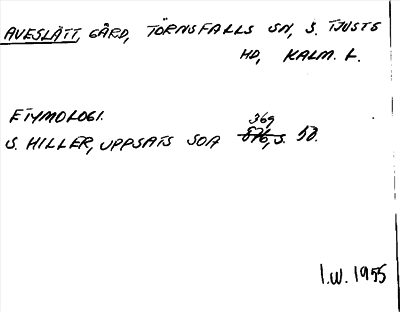 AVESLÄTT, GÅRD, TÖRNSFALLS SN, S. TJUSTS
HD, KALM. L.
ETYMOLOGI.
369
S. HILLER, UPPSATS SOA 576, S. 50.
I.W. 1955